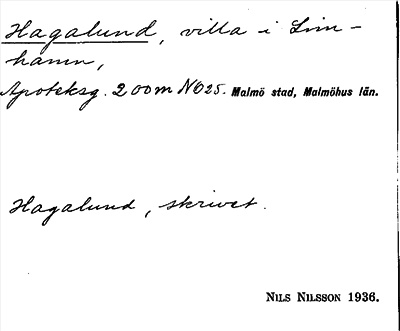 Hagalund, villa i Lim-
hamn,
Apoteksg. 200 m NO 25. Malmö stad, Malmöhus län.
Hagalund, skrivet.
NILS NILSSON 1936.